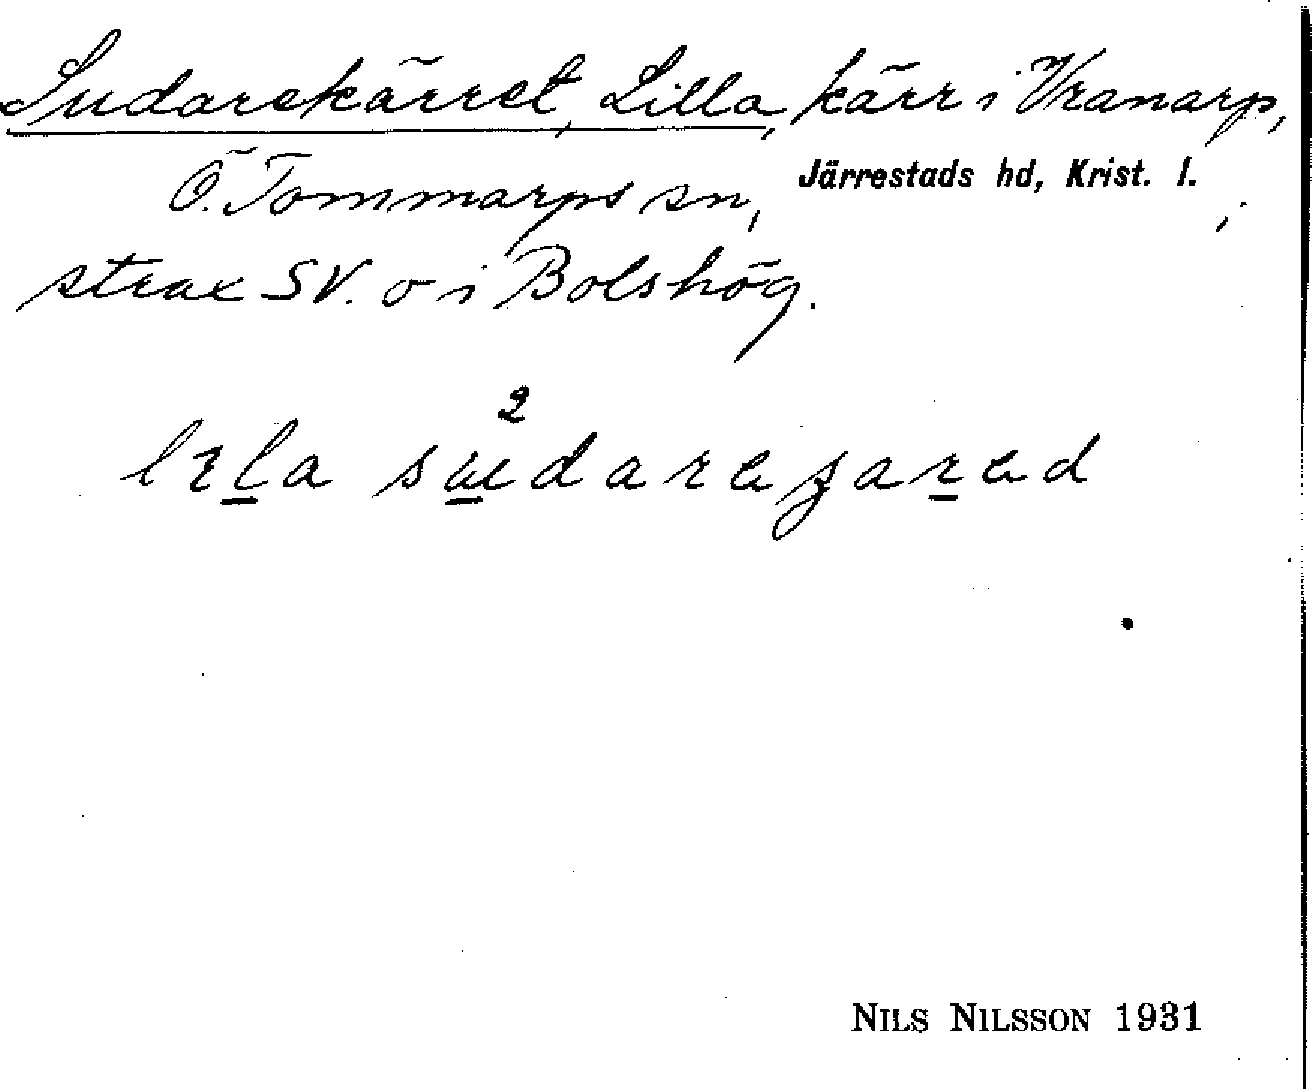 Sudarekärret, Lilla, kärr i Vranarp,
Ö. Tommarps sn, Järrestads hd, Krist. l. ;
strax SV. o i Bolshög.
2
NILS NILSSON 1931